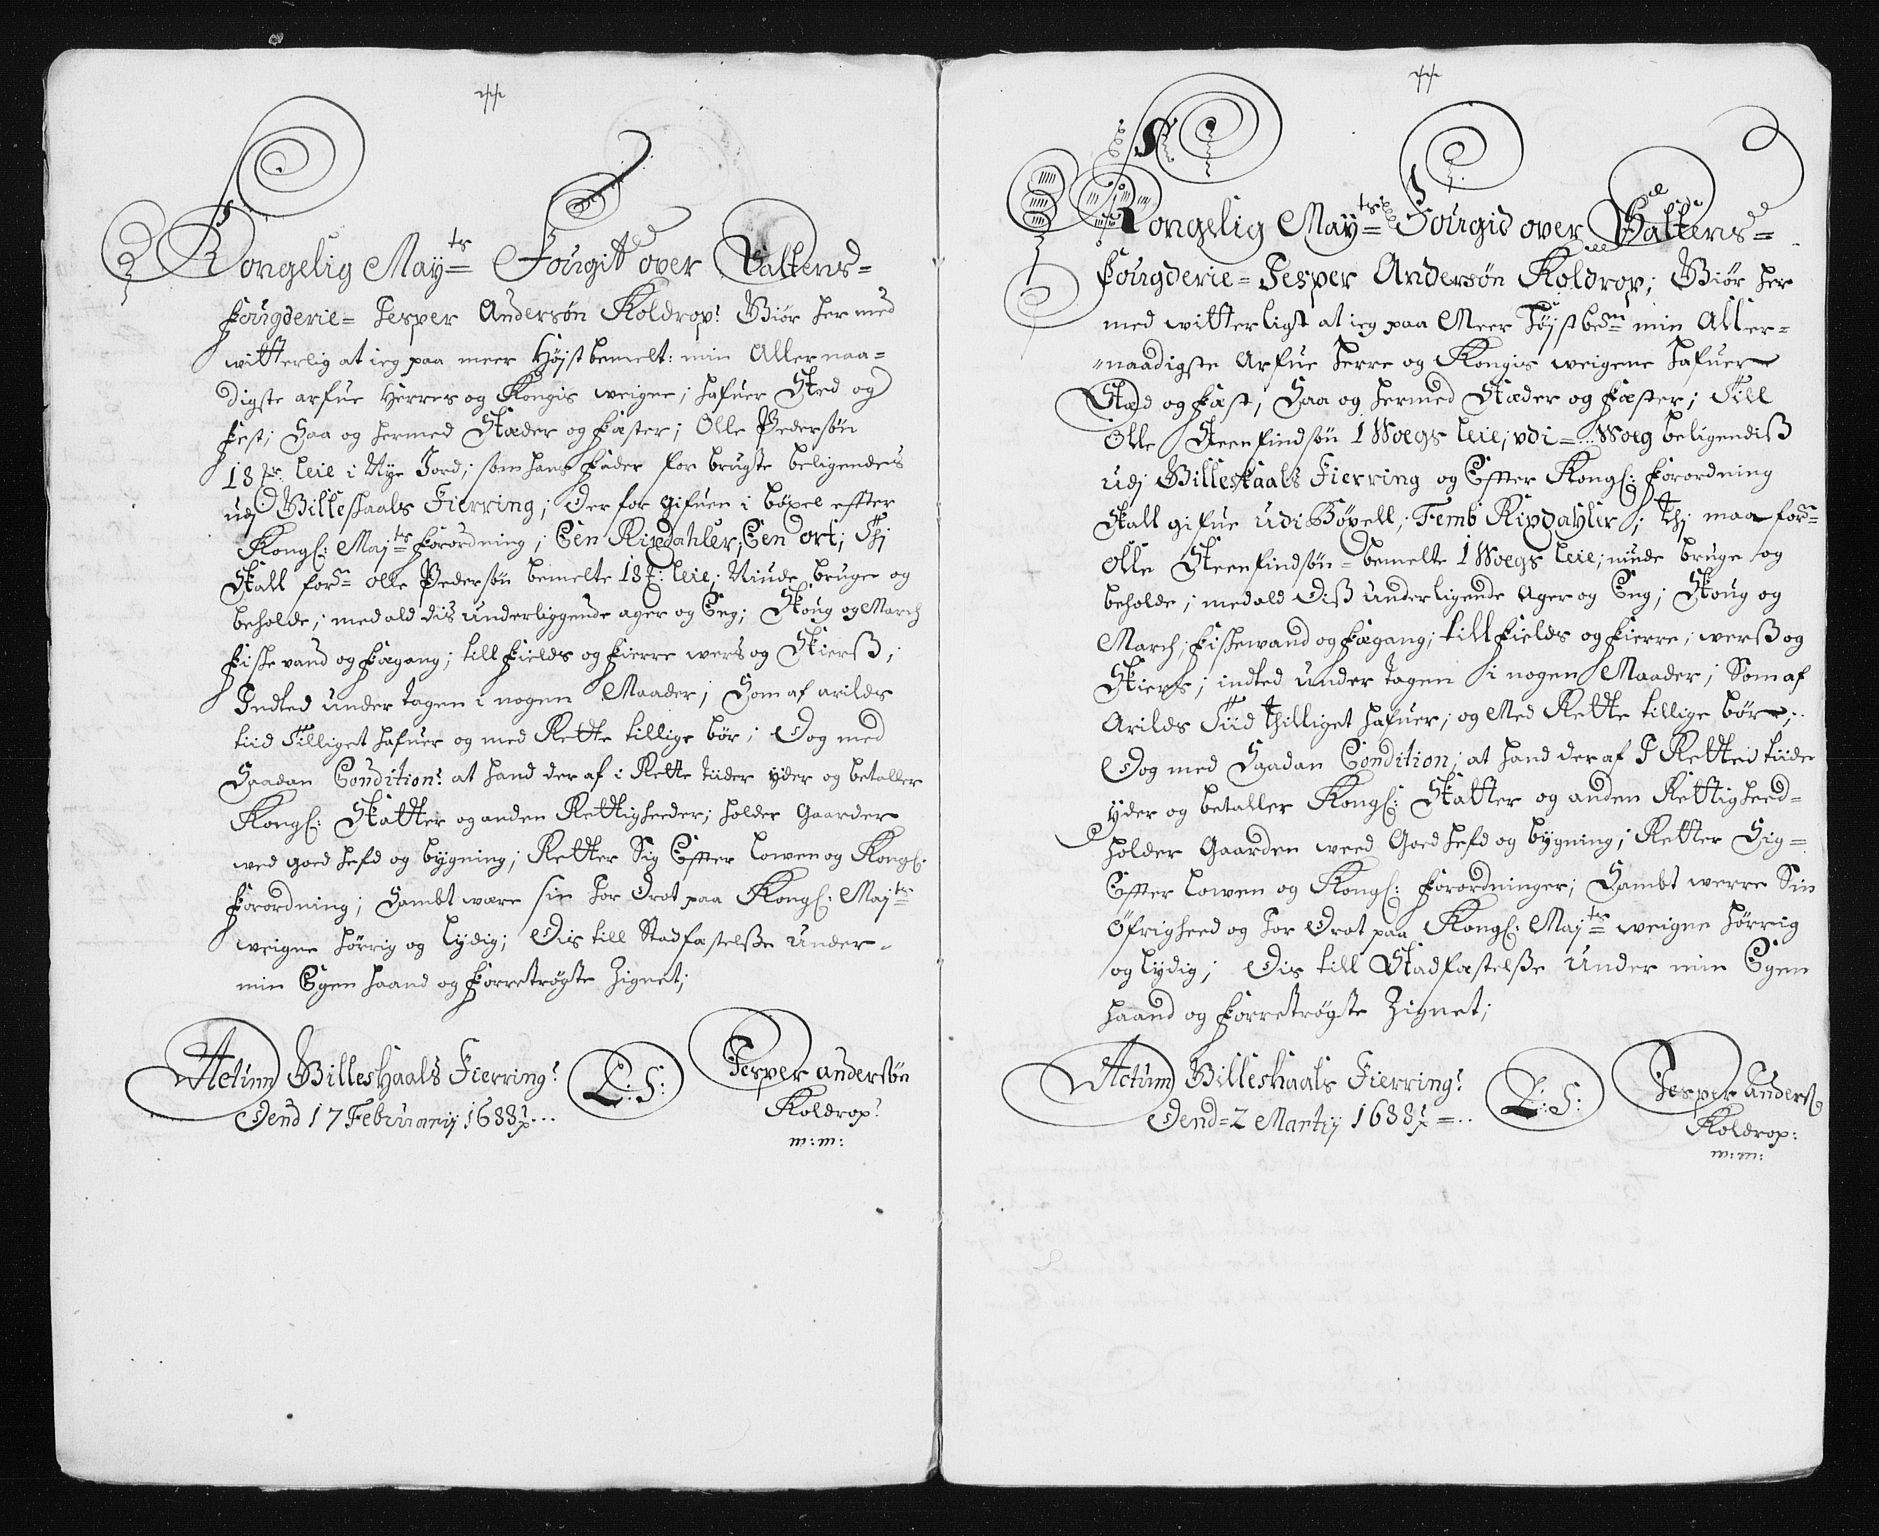 Kongelig May:ts Fougit over Saltens=
Fougderie= Jesper Andersøn Koldrop: Giør her med
witterlig at ieg paa meer Høyst bemelt: min Aller naa=
digste arfue Herres og Kongis weigne; hafuer Sted og
Fest; Saa og hermed Stæder og Fæster; Olle Pedersøn
18 Leie i Nye Jord; som hans Fader for brugte beligendes
udj Billeskaals Fierring; Der for gifuen i böxel effter
Kongl: Maj:ts Forordning; Een Rixdahler; Een ort; Thj
Skall for:n olle Pedersøn bemelte 18 Leie; Niude bruge og
beholde; med ald dis underliggende ager og Eng; Skoug og March
Fiske vand og Fægang; till Fields og Fierre wers og Skierß;
Indted under tagen i nogen Maader; Som af arilds
tiid Tilliget hafuer og med Rette tillige bør; Dog med
Saadan Condition: at hand der af i Rette tiider yder og betaller
Kongl: Skatter og anden Rettigheeder; holder Gaarden
wed goed hefd og bygning; Retter Sig Effter lowen og Kongl:
Forordning; Sambt ware sin Jor Drot paa Kongl: Maj:ts
weigne hörrig og lydig; Dis till Stadfæstelße under
min Egen haand og Forretrögte Zignet;
Actum Billeskaals Fierring: L: S: Jesper andersøn
Dend 17 Februarij 1688 Koldrop:
m:m:
Kongelig May:ts Fougid over Saltens=
Fougderie= Jesper Andersøn Koldrop; Giør her
med witterligt at ieg paa Meer Høyst be:m min Aller=
naadigste Arfue Herre og Kongis weigene hafuer
Stæd og Fæst; Saa og hermed Stæder og Fæster; Till
Olle Steenfindsön 1 Woegs Leie; vdi= Woeg beligendiß
udj Billeskaals Fierring og Effter Kongl: Forordning
Skall gifue udi Böxell; Femb Rixdahler; Thj maa for:n
Olle Steenfindsön= bemelte 1 Woegs Leie; niude bruge og
beholde; med ald Diß underligende Ager og Eng; Skoug og
March; Fiskewand og Fægang; till Fields og Fierre; werß og
Skiers; indted under tagen i nogen Maader; Som af
Arilds Tiid thilliget hafuer; og Med Rette tillige bör;
Dog med Saadan Condition; at hand der af I Retted tiide
yder og betaller Kongl: Skatter og anden Rettigheed=
holder Gaarden weed Goed hefd og bygning; Retter Sig=
Effter lowen og Kongl: Forordninger; Sambt werre Sin
Öfrigheed og Jor Drot paa Kongl: Maj:ts weigne hörrig
og lydig; Dis till Stadfæstelße under min Egen
haand og Forretrögte Zignet;
Actum Billeskaals Fierring: L: S: Jesper Anders:
Dend= 2 Martij 1688 Koldrop:
m:m: